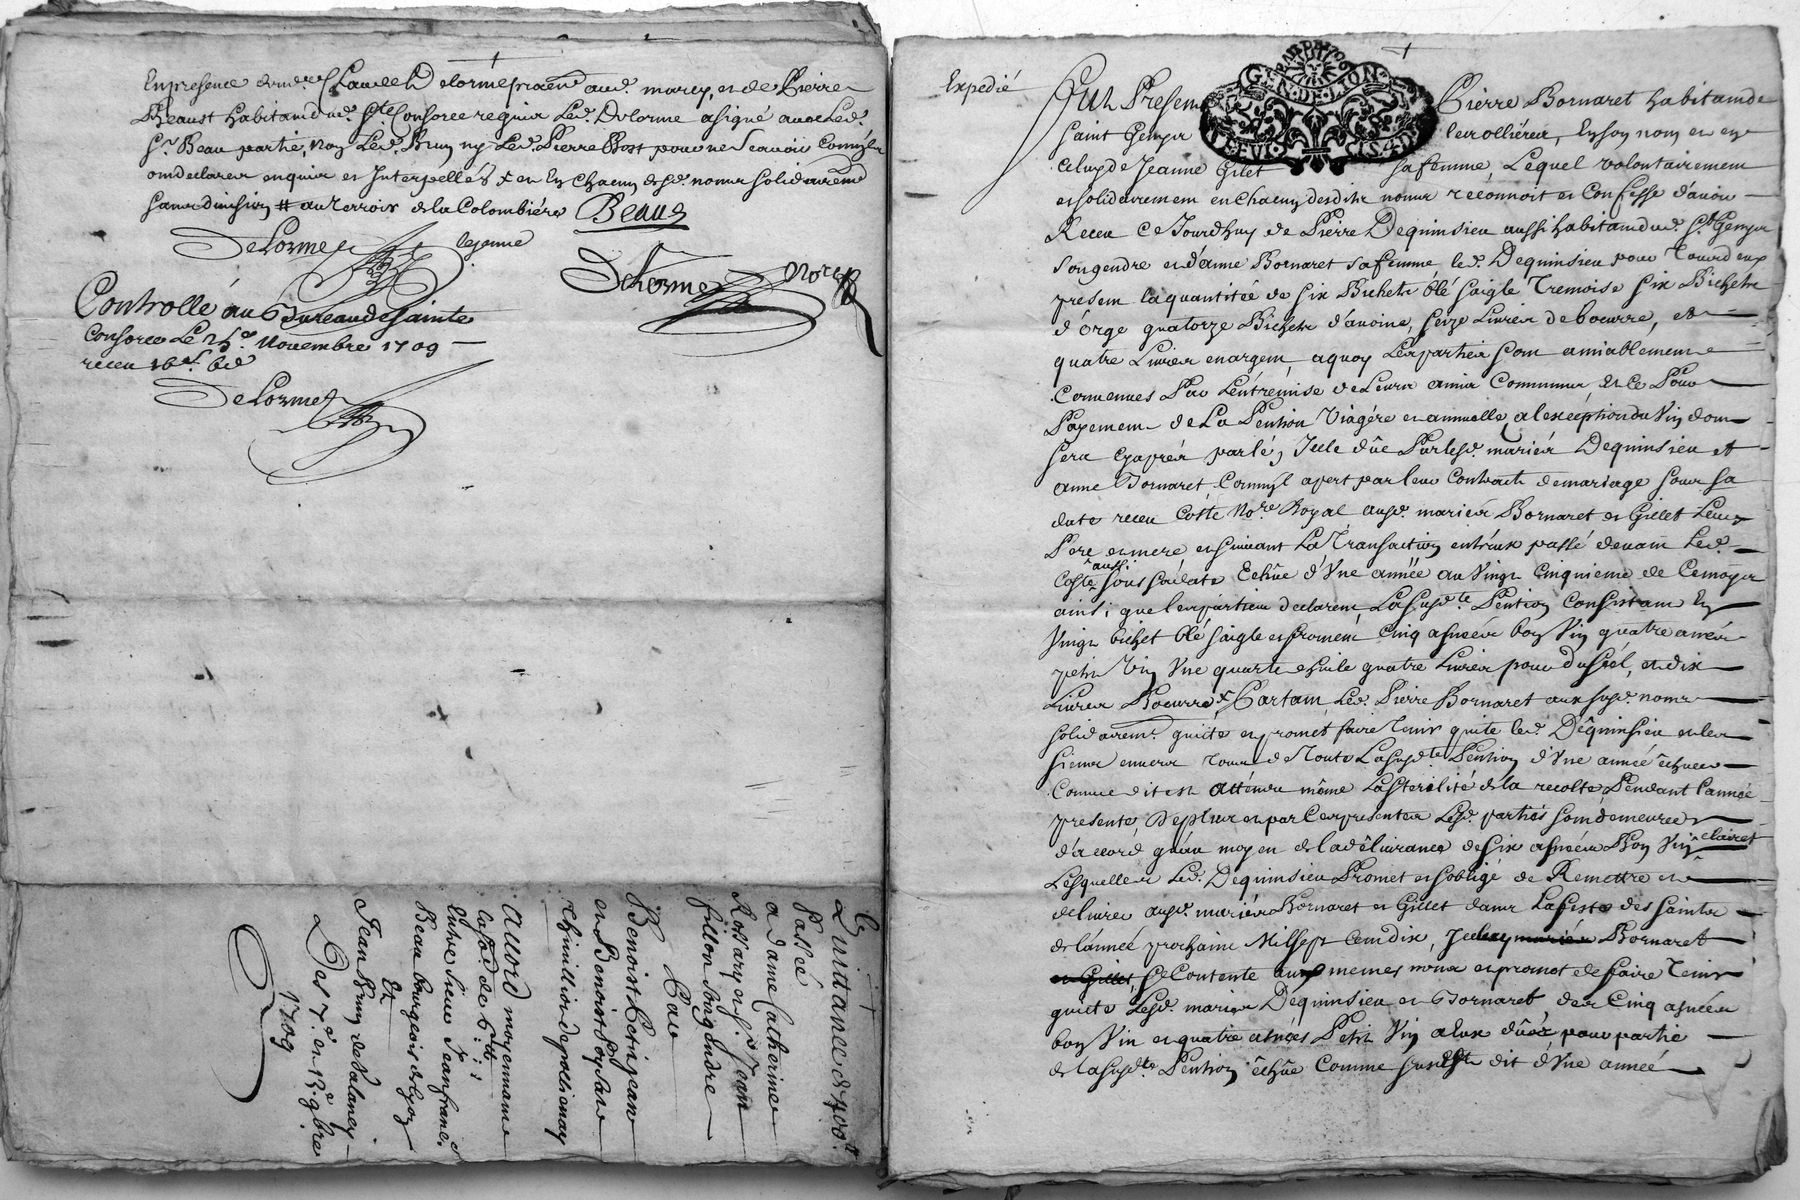 En presence de me Claude Delorme praticien aud. marcy, et de Pierre
Beaust habitand aud. Ste Consorce requis Led. Delorme a signé avec Led.
Sr. Beau partie, non Led. Brun ny Led. Pierre Bost pour ne scavoir Comm'ils
ont declaré enquis et Interpellés + et En chacun desd. noms solidairemt
sans division # au terroir de la Colombiére Beaud
Delorme le jeune
Delorme Nore
Controllé au Bureau de Sainte
Consorce Le 25e. Novembre 1709
receu
Delorme
Quittance de 400 lt
Passé
a dame Catherine
Rosary et Sr. Jean
fillon son gendre
Par
Benoist Petitjean
et Benoist
Thivillion de pollionay
Accord moyennant
la so. de 6 lt
Entre Sieur Jean franc.
Beau bourgeois de Lyon
Et
Jean Brun de Valaney
Des 7e. et 13e 9bre
1709
Expedié
Fut Present Pierre Bornaret habitand de
Saint Genys Lesrolliéres, En son nom et en
Celuy de Jeanne Gilet sa femme, Lequel volontairement
et solidairement en chacun desdits noms reconnoit et Confesse d'avoir
Receu Ce Jourdhuy de Pierre Dequinsieu aussi habitand aud. St. Genys
son gendre et d'anne Bornaret sa femme led. Dequinsieu pour Tous deux
present la quantitée de six Bichets blé saigle Tremoise six Bichets
d'orge quatorze Bichets d'avoine, seize Livres de beurre, et
quatre Livres en argent, a quoy Les parties sont amiablement
Convenues Par L'entremise de Leurs amis Communs Et ce Pour
Payement de La Pention Viagére et annuelle, a l'exception du Vin dont
sera cy aprés parlé, Icelle dûe Par lesd. mariés Dequinsieu et
anne Bornaret Comm'il apert par leur Contract de mariage sous sa
date receu Coste Nore Royal ausd. mariés Bornaret et Gillet Leurs
Pere et mere et suivant La Transaction entr'eux passé devant Led.
Coste aussi sous sa date Echûe d'Vne année au Vingt Cinquieme de Ce mois
ainsi que les parties declarent, La susd.te Pention Consistant En
Vingt bichet blé saigle et froment Cinq asnées bon Vin quatre asnées
petit Vin Vne quarte huile quatre Livres pour du sel, et dix
Livres Boeurre + Partant Led. Pierre Bornaret aux susd. noms
solidairemt. quitte et promet faire tenir quitte led. Dequinsieu et les
siens envers tous de Toute La susd.te Pention d'Vne année échue
Comme dit est attendu même La sterilité de la recolte Pendant l'année
presente, De plus et par Ces presentes Lesd. parties sont demeurées
d'accord qu'au moyen de la délivrance de six asnées Bon Vin clairet
Lesquelles Led. Dequinsieu Promet et s'oblige de Remettre et
delivrer ausd. mariés Bornaret et Gillet dans La feste des Saints
de L'année prochaine Mil sept Cent dix, Bornaret
et Gillet, se Contente aux memes noms et promet de faire tenir
quitte Lesd. mariés Dequinsieu et Bornaret des Cinq asnées
bon Vin et quatre asnées Petit Vin a Eux dûes pour partie
de la susd.te Pention êchûe Comme sus est dit d'Vne année